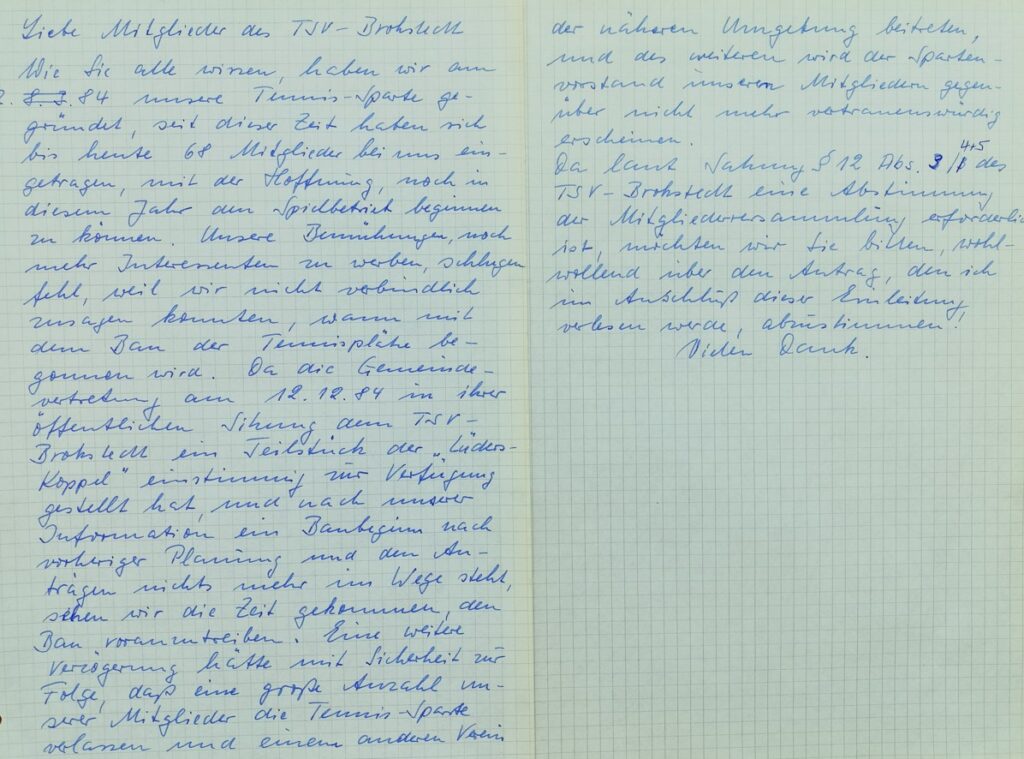 Liebe Mitglieder des TSV-Brokstedt
Wie Sie alle wissen, haben wir am
8.3.84 unsere Tennis-Sparte ge-
gründet, seit dieser Zeit haben sich
bis heute 68 Mitglieder bei uns ein-
getragen, mit der Hoffnung, noch in
diesem Jahr den Spielbetrieb beginnen
zu können. Unsere Bemühungen, noch
mehr Interessenten zu werben, schlugen
fehl, weil wir nicht verbindlich
zusagen konnten, wann mit
dem Bau der Tennisplätze be-
gonnen wird. Da die Gemeinde-
vertretung am 12.12.84 in ihrer
öffentlichen Sitzung dem TSV-
Brokstedt ein Teilstück der „Lüders-
Koppel" einstimmig zur Verfügung
gestellt hat, und nach unserer
Information ein Baubeginn nach
vorheriger Planung und den An-
trägen nichts mehr im Wege steht,
sehen wir die Zeit gekommen, den
Bau voranzutreiben. Eine weitere
Verzögerung hätte mit Sicherheit zur
Folge, daß eine große Anzahl un-
serer Mitglieder die Tennis-Sparte
verlassen und einem anderen Verein
der näheren Umgebung beitreten,
und des weiteren wird der Sparten-
vorstand unseren Mitgliedern gegen-
über nicht mehr vertrauenswürdig
erscheinen.
Da laut Satzung § 12 Abs. 3/4+5 des
TSV-Brokstedt eine Abstimmung
der Mitgliederversammlung erforderlich
ist, möchten wir Sie bitten, wohl-
wollend über den Antrag, den ich
im Anschluß dieser Einleitung
verlesen werde, abzustimmen!
Vielen Dank.